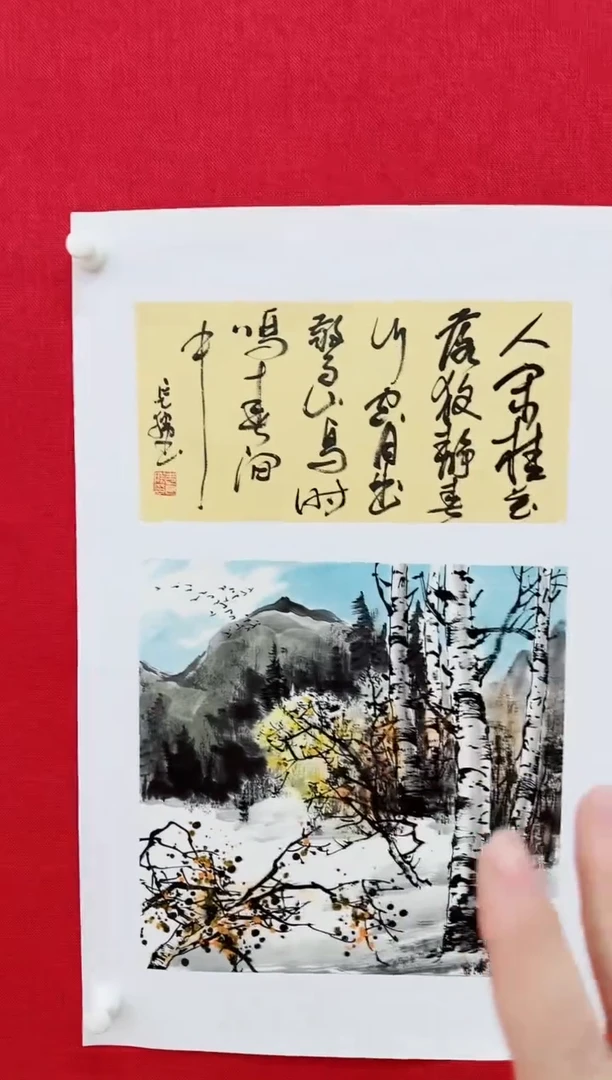 人闲桂花
落夜静春
山空月出
驚山鸟时
鸣春涧
中